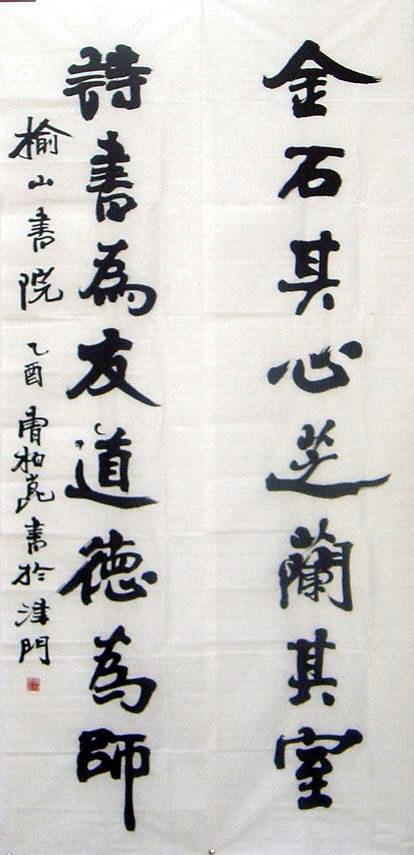 金石其心芝蘭其室
詩書為友道德為師
榆山書院
乙酉曹柏崑書於津門